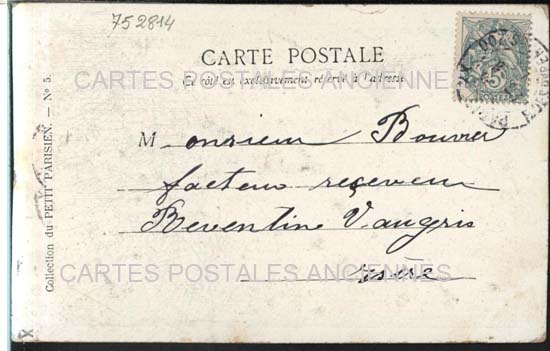 752814
CARTE POSTALE
Ce côté est exclusivement réservé à l'adresse
CARTES POSTALES ANCIENNES
Monsieur Bouvier
facteur receveur
Reventine Vaugris
Isère
CARTES POSTALES ANCIENNES
Collection du PETIT PARISIEN. — N° 5.
X